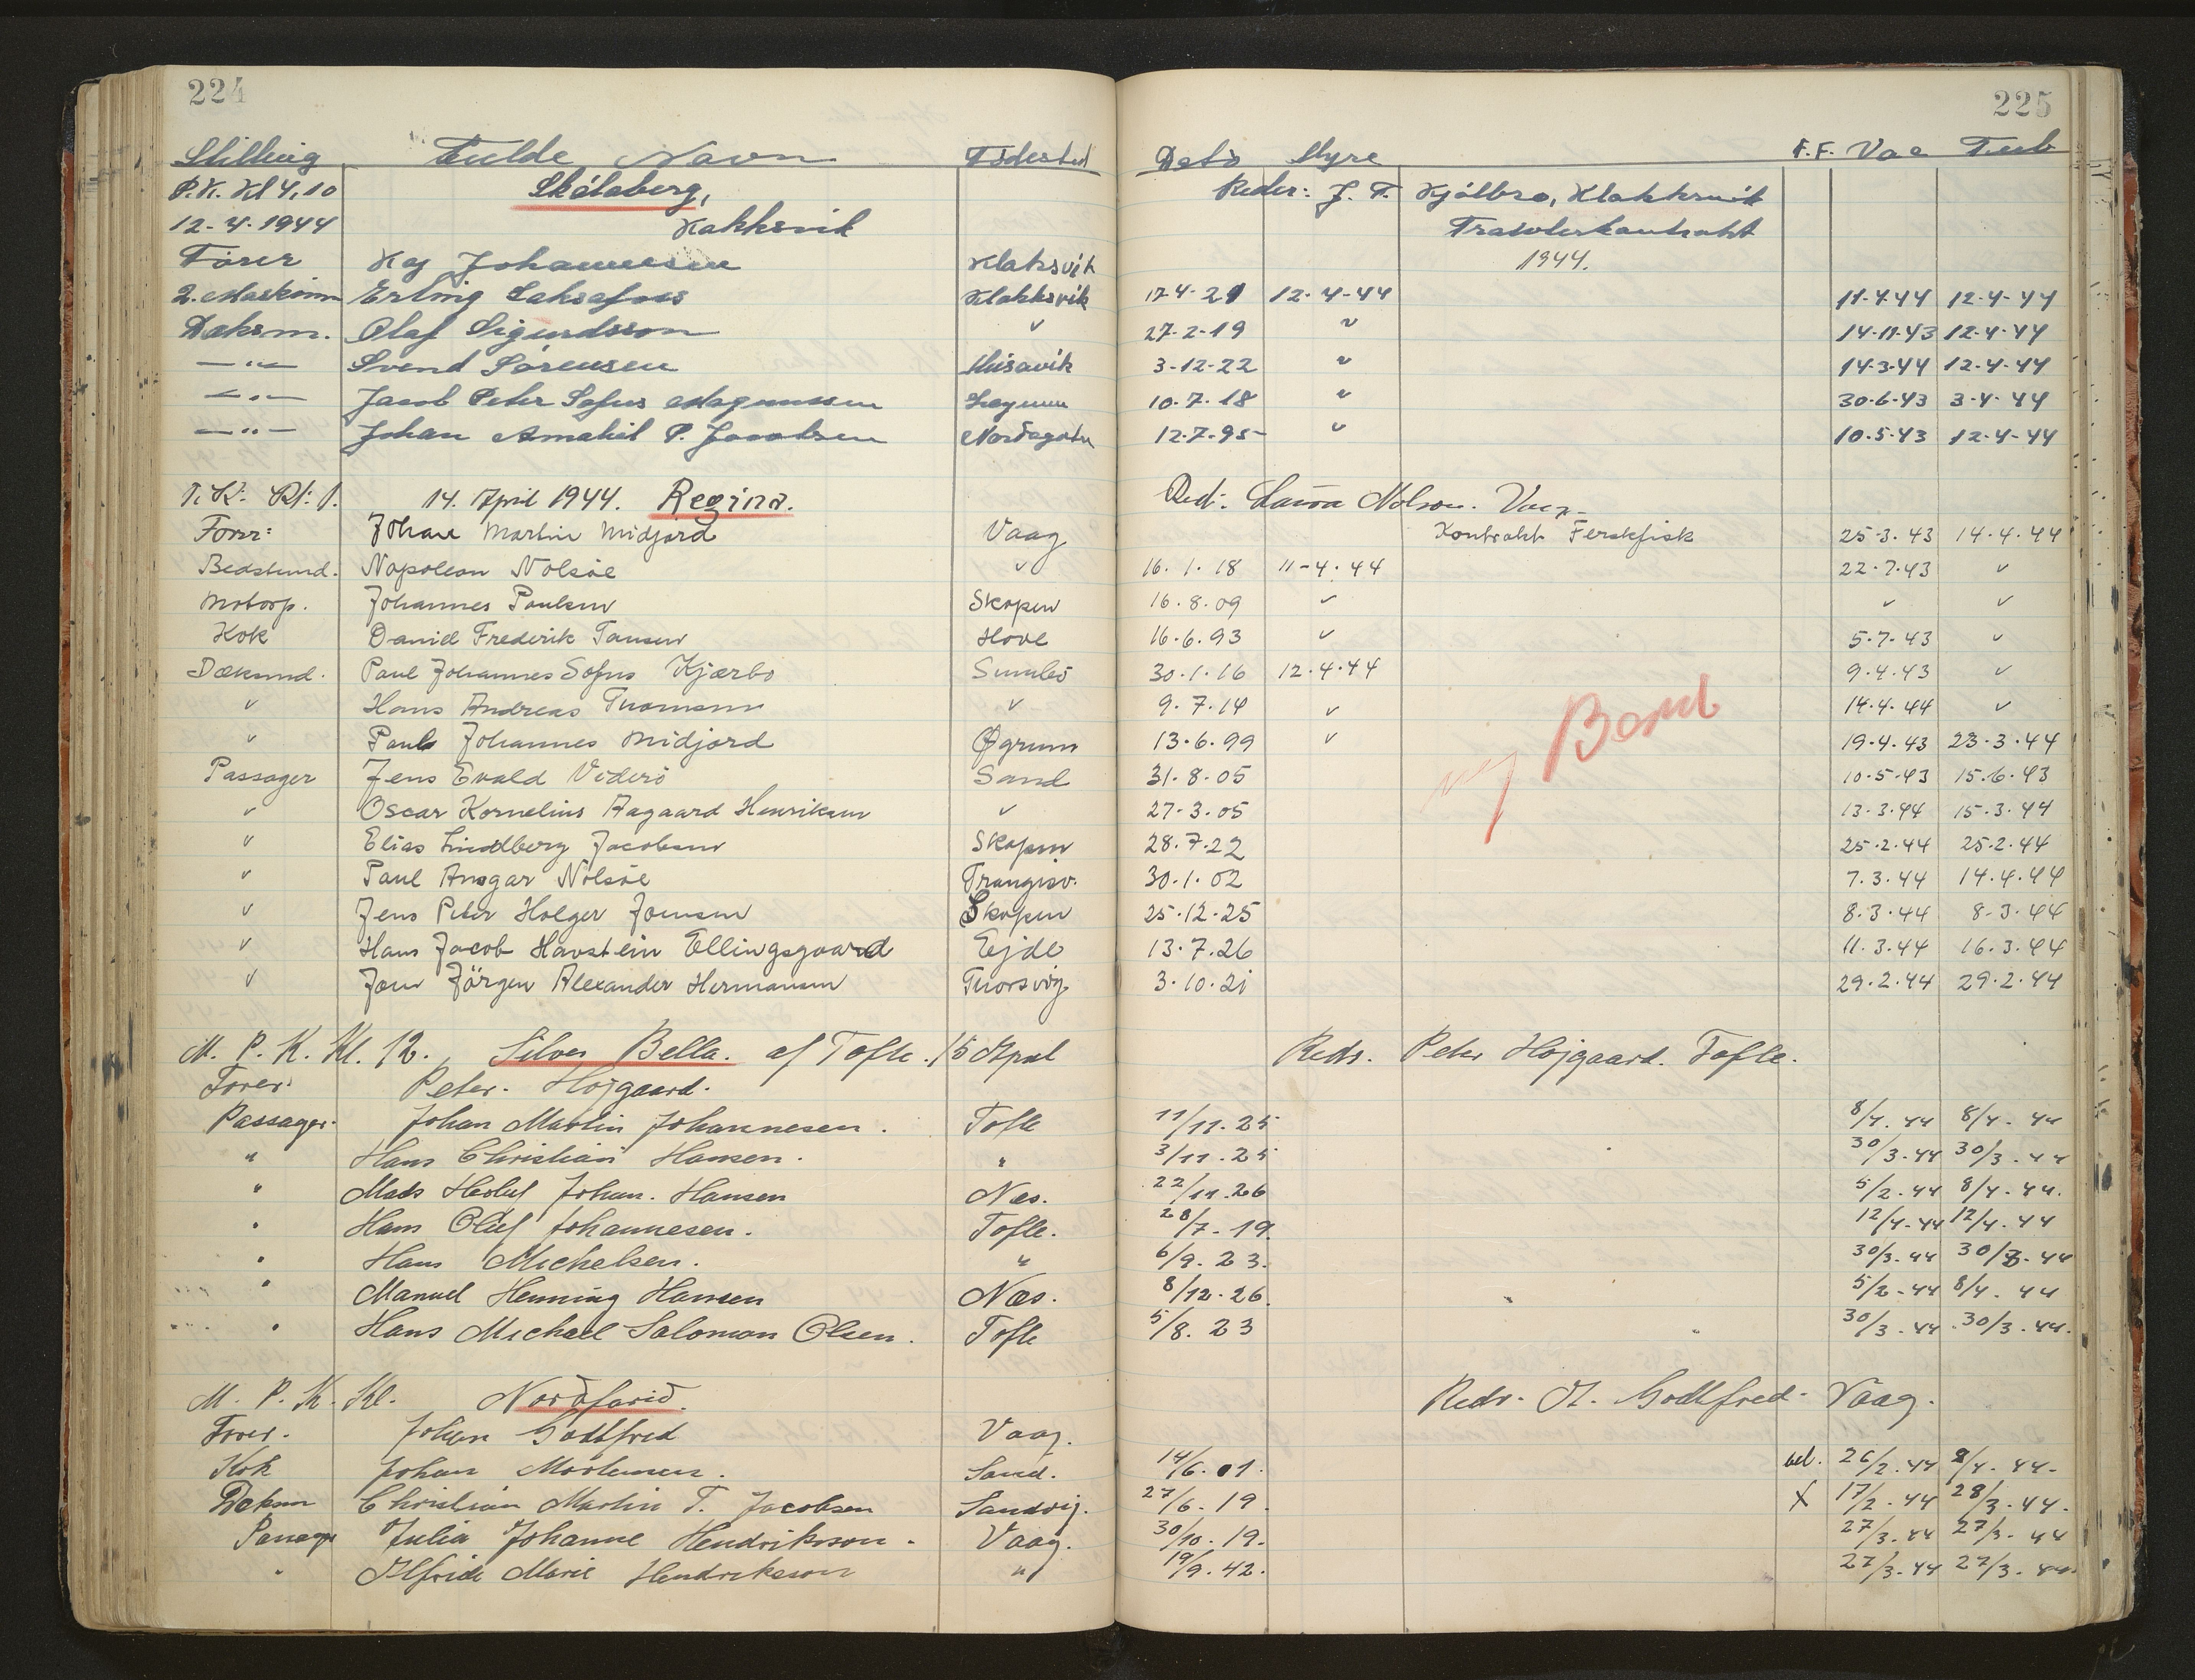 224
225
Stilling Fulde Navn Födested Dato Hyre F.F. Vac Tub
P.K. Kl 4,10 Skálaberg, Reder: J. F. Kjölbro, Klakksvik
12-4-1944 Kakksvik
1944.
Förer Kaj Johannesen Klaksvik
2. Maskinm Erling 17-4-21 12-4-44 11-4-44 12-4-44
Klakksvik
Dæksm. Olaf Sigurdsson " 27-2-19 " 14-11-43 12-4-44
—"— Svend Sörensen Húsavik 3-12-22 " 14-3-44 12-4-44
—"— Jacob Peter Sofus Magnussen 10-7-18 " 30-6-43 3-4-44
—"— Johan Amaliel P. Jacobsen Nordagøtu 12-7-95 " 10-5-43 12-4-44
14. April 1944. Regina. Red:
Förer: Johan Martin Midjord Vaag Kontrakt Ferskfisk 25-3-43 14.4.44
Bedstmd. Napoleon Nolsöe " 16.1.18 11-4-44 22.7.43 "
Motorp. Johannes Poulsen Skopun 16.8.09 " " "
Kok Daniel Frederik Tausen Hove 16.6.93 " 5.7.43 "
Dæksmd. Paul Johannes Sofus Kjærbo Sumbö 30.1.16 12.4.44 9.4.43 "
" Hans Andreas Thomsen " 9.7.14 " 14.4.44 "
" Paul Johannes Midjord Øgrum 13.6.99 " 19.4.43 23.3.44
Bond
Passager Jens Evald Viderö Sand 31.8.05 10.5.43 15.6.43
" Oscar Kornelius Aagaard Henriksen " 27-3.05 13.3.44 15.3.44
" Elias Lindberg Jacobsen Skopun 28.7.22 25.2.44 25.2.44
" Paul Ansgar Nolsöe Trangisv. 30.1.02 7.3.44 14.4.44
" Jens Peter Holger Joensen Skopun 25.12.25 8.3.44 8.3.44
" Hans Jacob Havstein Ellingsgaard Ejde 13.7.26 11.3.44 16.3.44
" Jens Jörgen Alexander Hermansen Thorsvig 3.10.21 29.2.44 29.2.44
M. P. K. Kl. 12. Silver Bella. af Tofte. 15 April Redr. Peter Höjgaard. Tofte.
Förer: Peter. Höjgaard.
Passager. Johan Martin Johannesen. Tofte 11/11.25 8/4.44 8/4.44
" Hans Christian Hansen. " 3/11.25 30/3.44 30/3.44
" Mads Johan. Hansen Næs. 22/11.26 5/2.44 8/4.44.
" Hans Oluf Johannesen. Tofte. 28/7.19. 12/4.44 12/4.44
" Hans Michelsen. " 6/9.23. 30/3.44 30/3.44
" Manuel Henning Hansen Næs. 8/12.26. 5/2.44 8/4.44
" Hans Michael Salomon Olsen. Tofte 5/8.23 30/3.44 30/3.44.
M. P. K. Kl. Nordfarid. Redr. Godtfred. Vaag.
Förer. Johan Godtfred Vaag.
Kok Johan Mortensen. Sand. 14/6.01. ud. 26/2.44 8/4.44.
Dæksm Christian Martin T. Jacobsen Sandvig. 27/6.19. X 17/2.44 28/3.44.
Passager Julia Johanne Hendriksson. Vaag. 30/10.19. 27/3.44 27/3.44
" Alfrida Marie Hendriksson " 19/9.42. 27/3.44 27/3.44